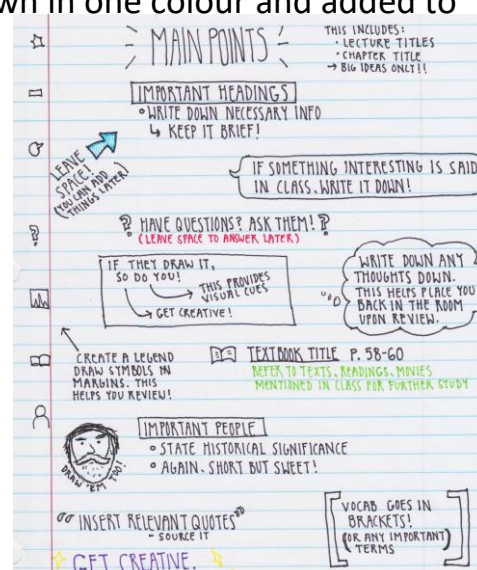 wn in one colour and added to
MAIN POINTS
THIS INCLUDES:
• LECTURE TITLES
• CHAPTER TITLE
→ BIG IDEAS ONLY!!
IMPORTANT HEADINGS
• WRITE DOWN NECESSARY INFO
↳ KEEP IT BRIEF!
LEAVE
SPACE!
(YOU CAN ADD
THINGS LATER)
IF SOMETHING INTERESTING IS SAID
IN CLASS. WRITE IT DOWN!
? HAVE QUESTIONS? ASK THEM! ?
(LEAVE SPACE TO ANSWER LATER)
IF THEY DRAW IT,
SO DO YOU!
→ THIS PROVIDES
VISUAL CUES
→ GET CREATIVE!
WRITE DOWN ANY
THOUGHTS DOWN.
THIS HELPS PLACE YOU
BACK IN THE ROOM
UPON REVIEW.
CREATE A LEGEND
DRAW SYMBOLS IN
MARGINS. THIS
HELPS YOU REVIEW!
TEXTBOOK TITLE P. 58-60
REFER TO TEXTS, READINGS, MOVIES
MENTIONED IN CLASS FOR FURTHER STUDY
IMPORTANT PEOPLE
• STATE HISTORICAL SIGNIFICANCE
• AGAIN. SHORT BUT SWEET!
DRAW 'EM TOO!
"INSERT RELEVANT QUOTES"
- SOURCE IT
[VOCAB GOES IN
BRACKETS!
(OR ANY IMPORTANT)
TERMS]
GET CREATIVE.